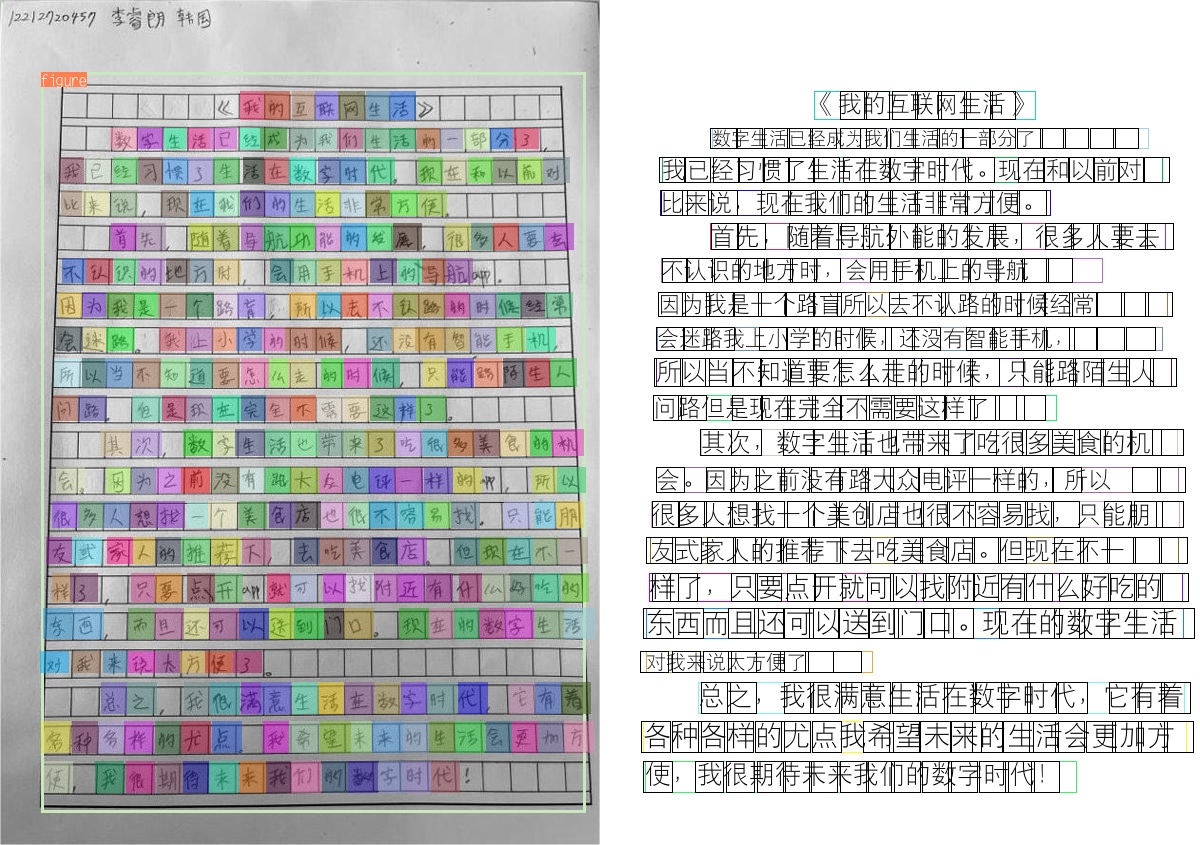 12212720457 李睿朗 韩国
figure
《我的互联网生活》
数字生活已经成为我们生活的一部分了,
我已经习惯了生活在数字时代。现在和以前对
比来说,现在我们的生活非常方便。
首先,随着导航功能的发展,很多人要去
不认识的地方时,会用手机上的导航app。
因为我是一个路盲,所以去不认路的时候经常
会迷路。我上小学的时候,还没有智能手机,
所以当不知道要怎么走的时候,只能路陌生人
问路。但是现在完全不需要这样了。
其次,数字生活也带来了吃很多美食的机
会。因为之前没有跟大众电评一样的app,所以
很多人想找一个美食店也很不容易找。只能朋
友或家人的推荐下,去吃美食店。但现在不一
样了,只要点开app就可以找附近有什么好吃的
东西,而且还可以送到门口。现在的数字生活
对我来说太方便了。
总之,我很满意生活在数字时代,它有着
各种各样的优点。我希望未来的生活会更加方
便,我很期待未来我们的数字时代!
《我的互联网生活》
数字生活已经成为我们生活的一部分了
我已经习惯了生活在数字时代。现在和以前对
比来说，现在我们的生活非常方便。
首先，随着导航外能的发展，很多人要去
不认识的地方时，会用手机上的导航
因为我是十个路盲所以去不认路的时候经常
会迷路我上小学的时候，还没有智能手机，
所以当不知道要怎么走的时候，只能路陌生人
问路但是现在完全不需要这样了
其次，数字生活也带来了吃很多美食的机
会。因为之前没有路大众电评一样的，所以
很多人想找十个美创店也很不容易找，只能朋
友式家人的推荐下去吃美食店。但现在不十
样了，只要点开就可以找附近有什么好吃的
东西而且还可以送到门口。现在的数字生活
对我来说太方便了
总之，我很满意生活在数字时代，它有着
各种各样的尤点我希望未来的生活会更加方
便，我很期待未来我们的数字时代！